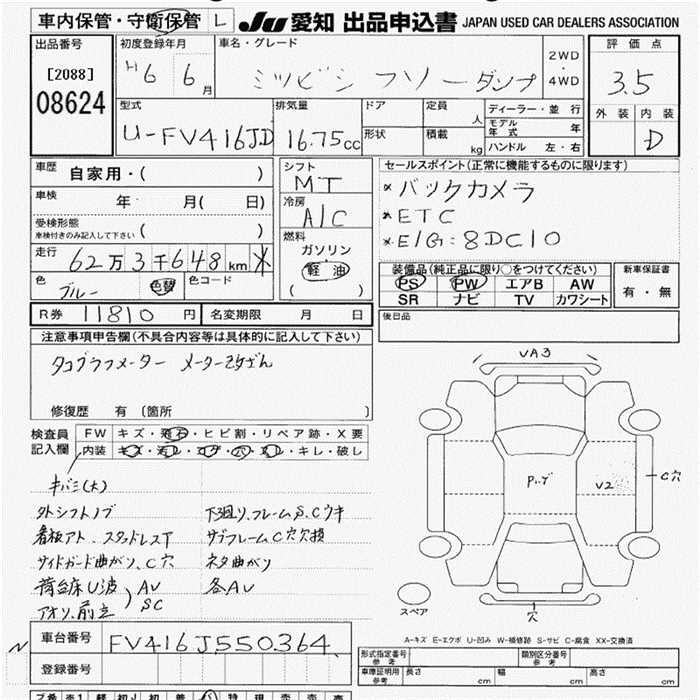 車内保管・守衛保管 L JU 愛知 出品申込書 JAPAN USED CAR DEALERS ASSOCIATION
出品番号 初度登録年月 車名・グレード 2WD 評価点
[2088] H6 6月 ミツビシ フソー ダンプ ・ 4WD 3.5
08624 外装 内装
型式 排気量 ドア 定員 人 ディーラー・並行 D
U-FV416JD 16.75cc 形状 積載 kg モデル年式 年
ハンドル 左・右
車歴 自家用・( ) シフト セールスポイント(正常に機能するものに限ります)
MT *バックカメラ
車検 年 月( 日) 冷房 *ETC
受検形態 ( ) A/C *E/G:8DC10
車検付きのみ記入して下さい 燃料
走行 62万3千648km * ガソリン・ 装備品(純正品に限り○をつけてください) 新車保証書
色 ブルー 色替 色コード 軽油 PS PW エアB AW 有・無
( ) SR ナビ TV カワシート
R券 11810円 名変期限 月 日 後日品
注意事項申告欄(不具合内容等は具体的に記入して下さい)
タコグラフメーター メーター改ざん VA3
修復歴 有 (箇所 )
検査員 FW キズ・飛石・ヒビ割・リペア跡・X要
記入欄 内装 キズ・汚レ・コゲ・穴・スレ・キレ・破し
キバミ(大) Pハゲ V2 C穴
外シフトノブ 下廻り、フレームS.Cウキ
看板アト.スタッドレスT サブフレームC穴欠損
サイドガード曲がり、C穴 ネタ曲がり
荷台床U波 AV 各AV
アオリ.前立 SC スペア 穴
A-キズ E-エクボ U-凹み W-補修跡 S-サビ C-腐食 XX-交換済
車台番号 FV416J550364 形式指定番号 参考 類別区分番号 参考
登録番号 車庫証明用 参考 長さ cm 幅 cm 高さ cm